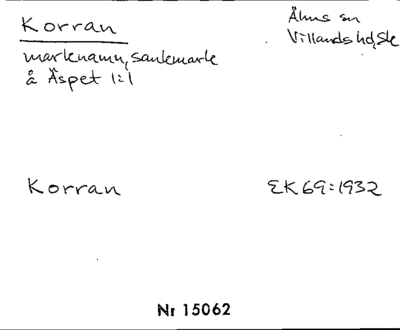 Korran
Åhus sn
Villands hd, Sk
marknamn, sankmark
å Äspet 1:1
Korran
EK 69:1932
Nr 15062